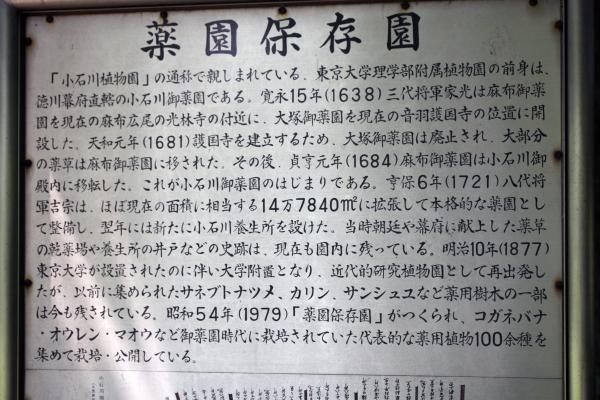 薬園保存園
「小石川植物園」の通称で親しまれている、東京大学理学部附属植物園の前身は、
徳川幕府直轄の小石川御薬園である。寛永15年(1638)三代将軍家光は麻布御薬
園を現在の麻布広尾の光林寺の付近に、大塚御薬園を現在の音羽護国寺の位置に開
設した。天和元年(1681)護国寺を建立するため、大塚御薬園は廃止され、大部分
の薬草は麻布御薬園に移された。その後、貞享元年(1684)麻布御薬園は小石川御
殿内に移転した。これが小石川御薬園のはじまりである。亨保6年(1721)八代将
軍吉宗は、ほぼ現在の面積に相当する14万7840㎡に拡張して本格的な薬園とし
て整備し、翌年には新たに小石川養生所を設けた。当時朝廷や幕府に献上した薬草
の乾薬場や養生所の井戸などの史跡は、現在も園内に残っている。明治10年(1877)
東京大学が設置されたのに伴い大学附置となり、近代的研究植物園として再出発し
たが、以前に集められたサネブトナツメ、カリン、サンシュユなど薬用樹木の一部
は今も残されている。昭和54年(1979)「薬園保存園」がつくられ、コガネバナ
・オウレン・マオウなど御薬園時代に栽培されていた代表的な薬用植物100余種を
集めて栽培・公開している。